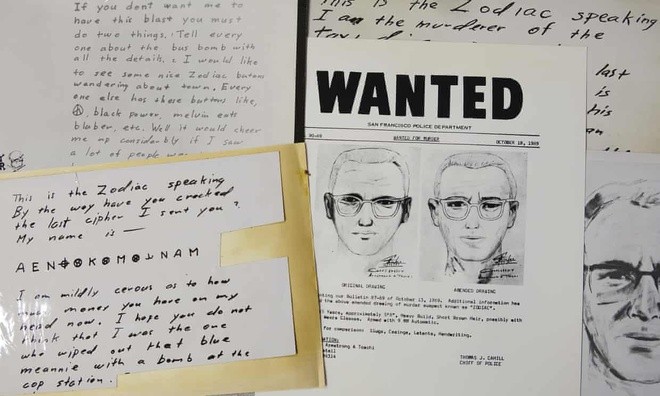 If you don't want me to
have this blast you must
do two things. Tell every
one about the bus bomb with
all the details. I would like
to see some nice Zodiac butons
wandering about town. Every
one else has these buttons like,
black power, melvin eats
blaber, etc. Well it would cheer
me up considerbly if I saw
a lot of people
This is the Zodiac speaking
By the way have you cracked
the last cipher I sent you?
My name is —
I am mildly cerous as to how
much money you have on my
head now. I hope you do not
think that I was the one
who wiped out that blue
meannie with a bomb at the
cop station.
This is the Zodiac speaking
I am the murderer of the
last
is
his
WANTED
SAN FRANCISCO POLICE DEPARTMENT
90-69 WANTED FOR MURDER OCTOBER 18, 1969
ORIGINAL DRAWING AMENDED DRAWING
our Bulletin 87-69 of October 13, 1969. Additional information has
the above amended drawing of murder suspect known as "ZODIAC".
Years, approximately 5'8", Heavy Build, Short Brown Hair, possibly with
Glasses. Armed with 9 MM Automatic.
for comparison: Slugs, Casings, Latents, Handwriting.
Armstrong & Toschi
THOMAS J. CAHILL
CHIEF OF POLICE